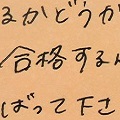 るかどうか
合格する
ばって下さ